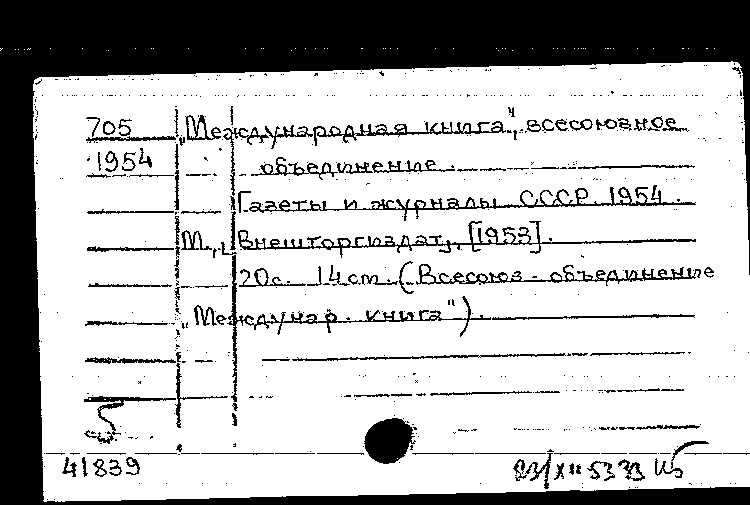 705 „Международная книга“, всесоюзное
1954 объединение.
Газеты и журналы СССР. 1954.
М., Внешторгиздат, [1953].
20с. 14cm. (Всесоюз. объединение
„Междунар. книга“).
5
41839 23/XII 53